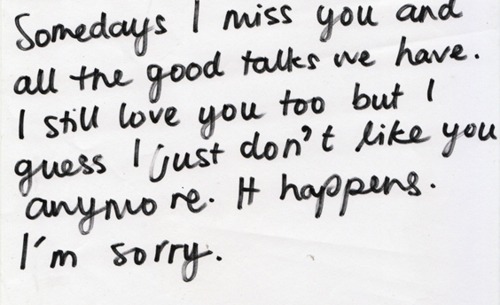 Somedays I miss you and
all the good talks we have.
I still love you too but I
guess I just don't like you
anymore. It happens.
I'm sorry.